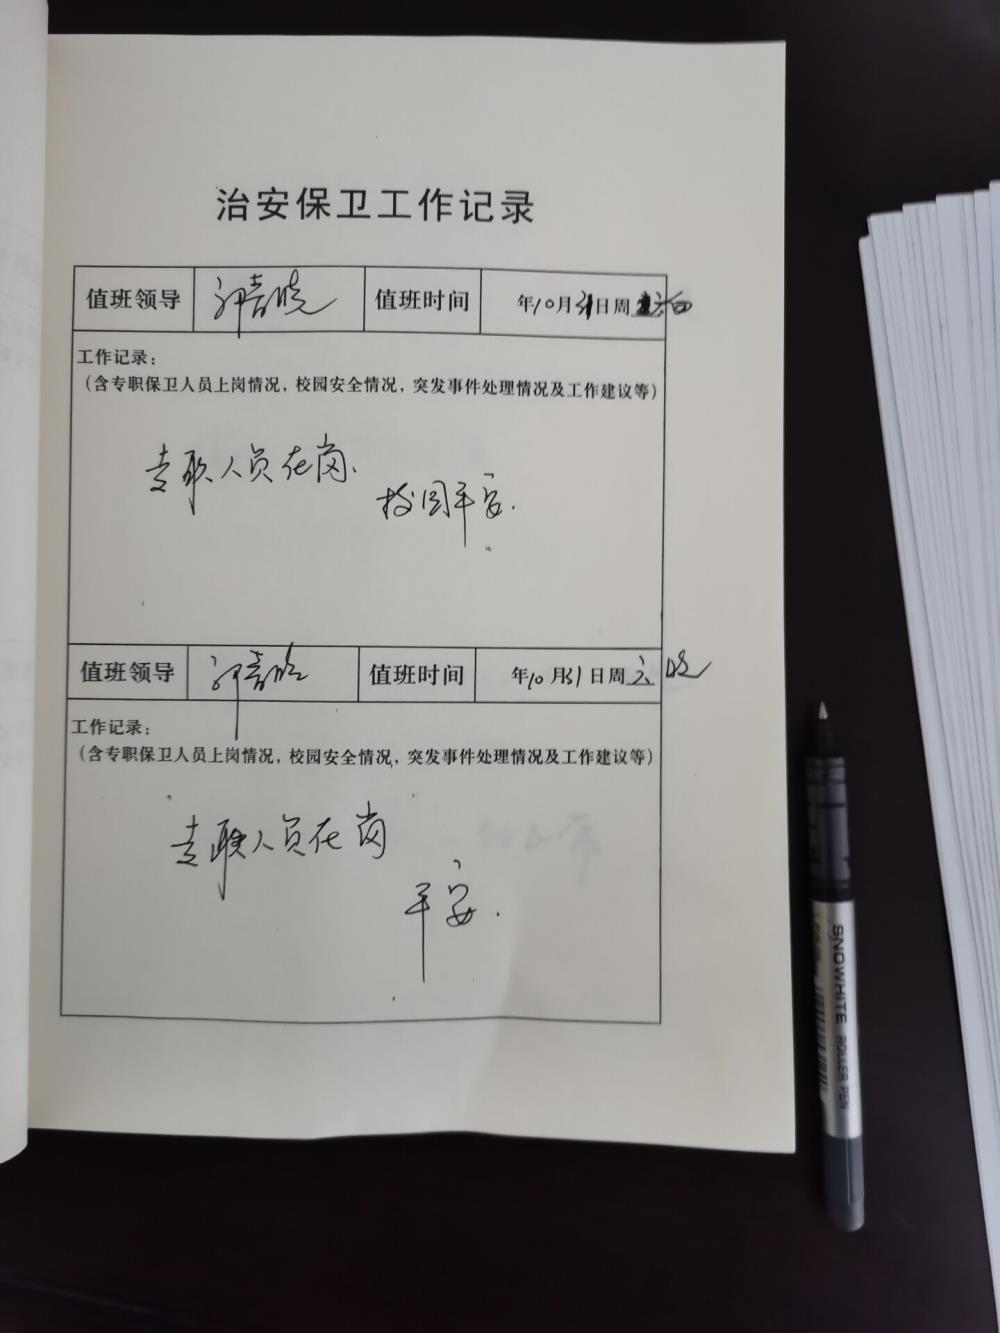 治安保卫工作记录
值班领导 值班时间 年10月31日周六白
工作记录：
（含专职保卫人员上岗情况，校园安全情况，突发事件处理情况及工作建议等）
专职人员在岗.
校园平安.
值班领导 值班时间 年10月31日周六晚
工作记录：
（含专职保卫人员上岗情况，校园安全情况，突发事件处理情况及工作建议等）
专职人员在岗
平安.
SNOWHITE ROLLER PEN